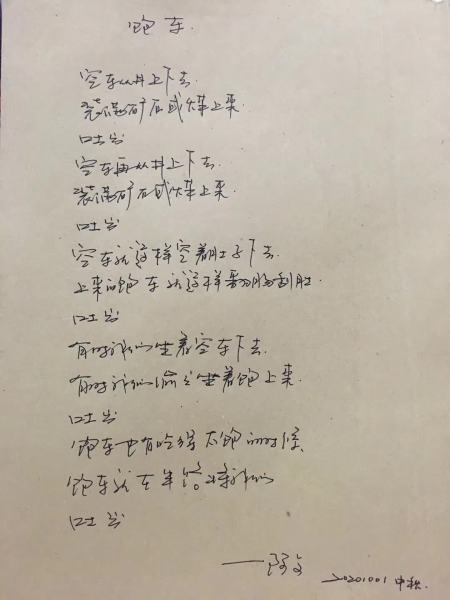 饱车
空车从井上下去
装满矿石或煤上来
吐出
空车再从井上下去
装满矿石或煤上来
吐出
空车就这样空着肚子下去
上来的饱车就这样翻肠刮肚
吐出
有时我们坐着空车下去
有时我们偷坐着饱上来
吐出
饱车也有吃得太饱的时候
饱车就在半路将我们
吐出
20201001 中秋